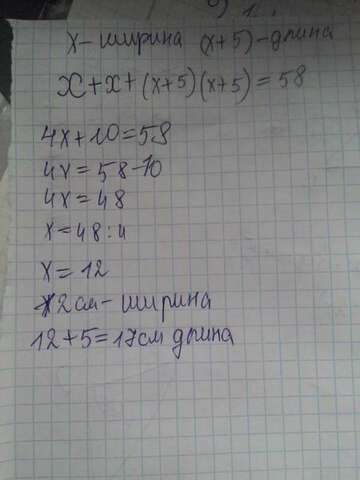 x - ширина (x+5) - длина
x+x+(x+5)(x+5)=58
4x+10=58
4x=58-10
4x=48
x=48:4
x=12
12см - ширина
12+5=17см длина